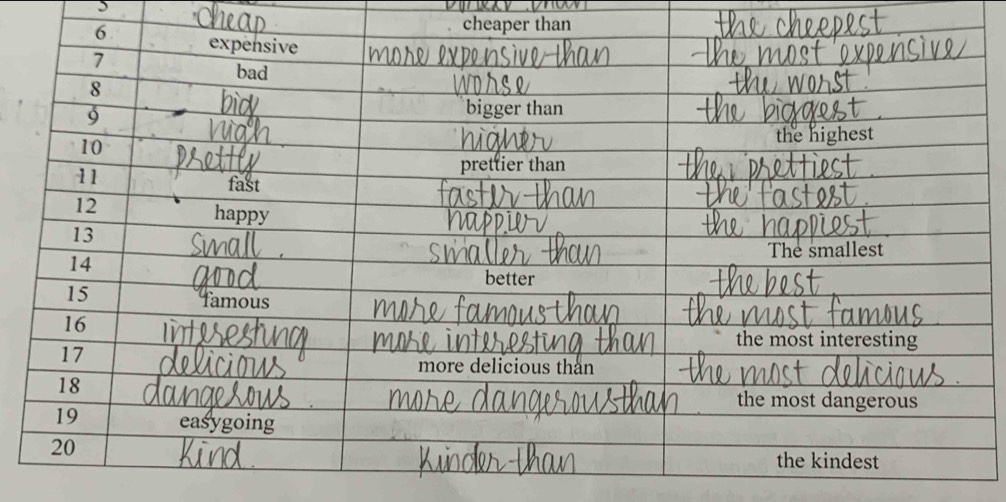 5
6 cheap cheaper than the cheepest
7 expensive more expensive than the most expensive
8 bad worse the worst.
9 big bigger than the biggest.
high. higher the highest
10 pretty prettier than the prettiest.
11 fast faster than the fastest.
12 happy happier the happiest.
13 small. smaller than The smallest
14 good better the best
15 famous more famous than the most famous.
16 interesting more interesting than the most interesting
17 delicious more delicious than the most delicious.
18 dangerous. more dangerous than the most dangerous
19 easygoing
20 kind. kinder than the kindest